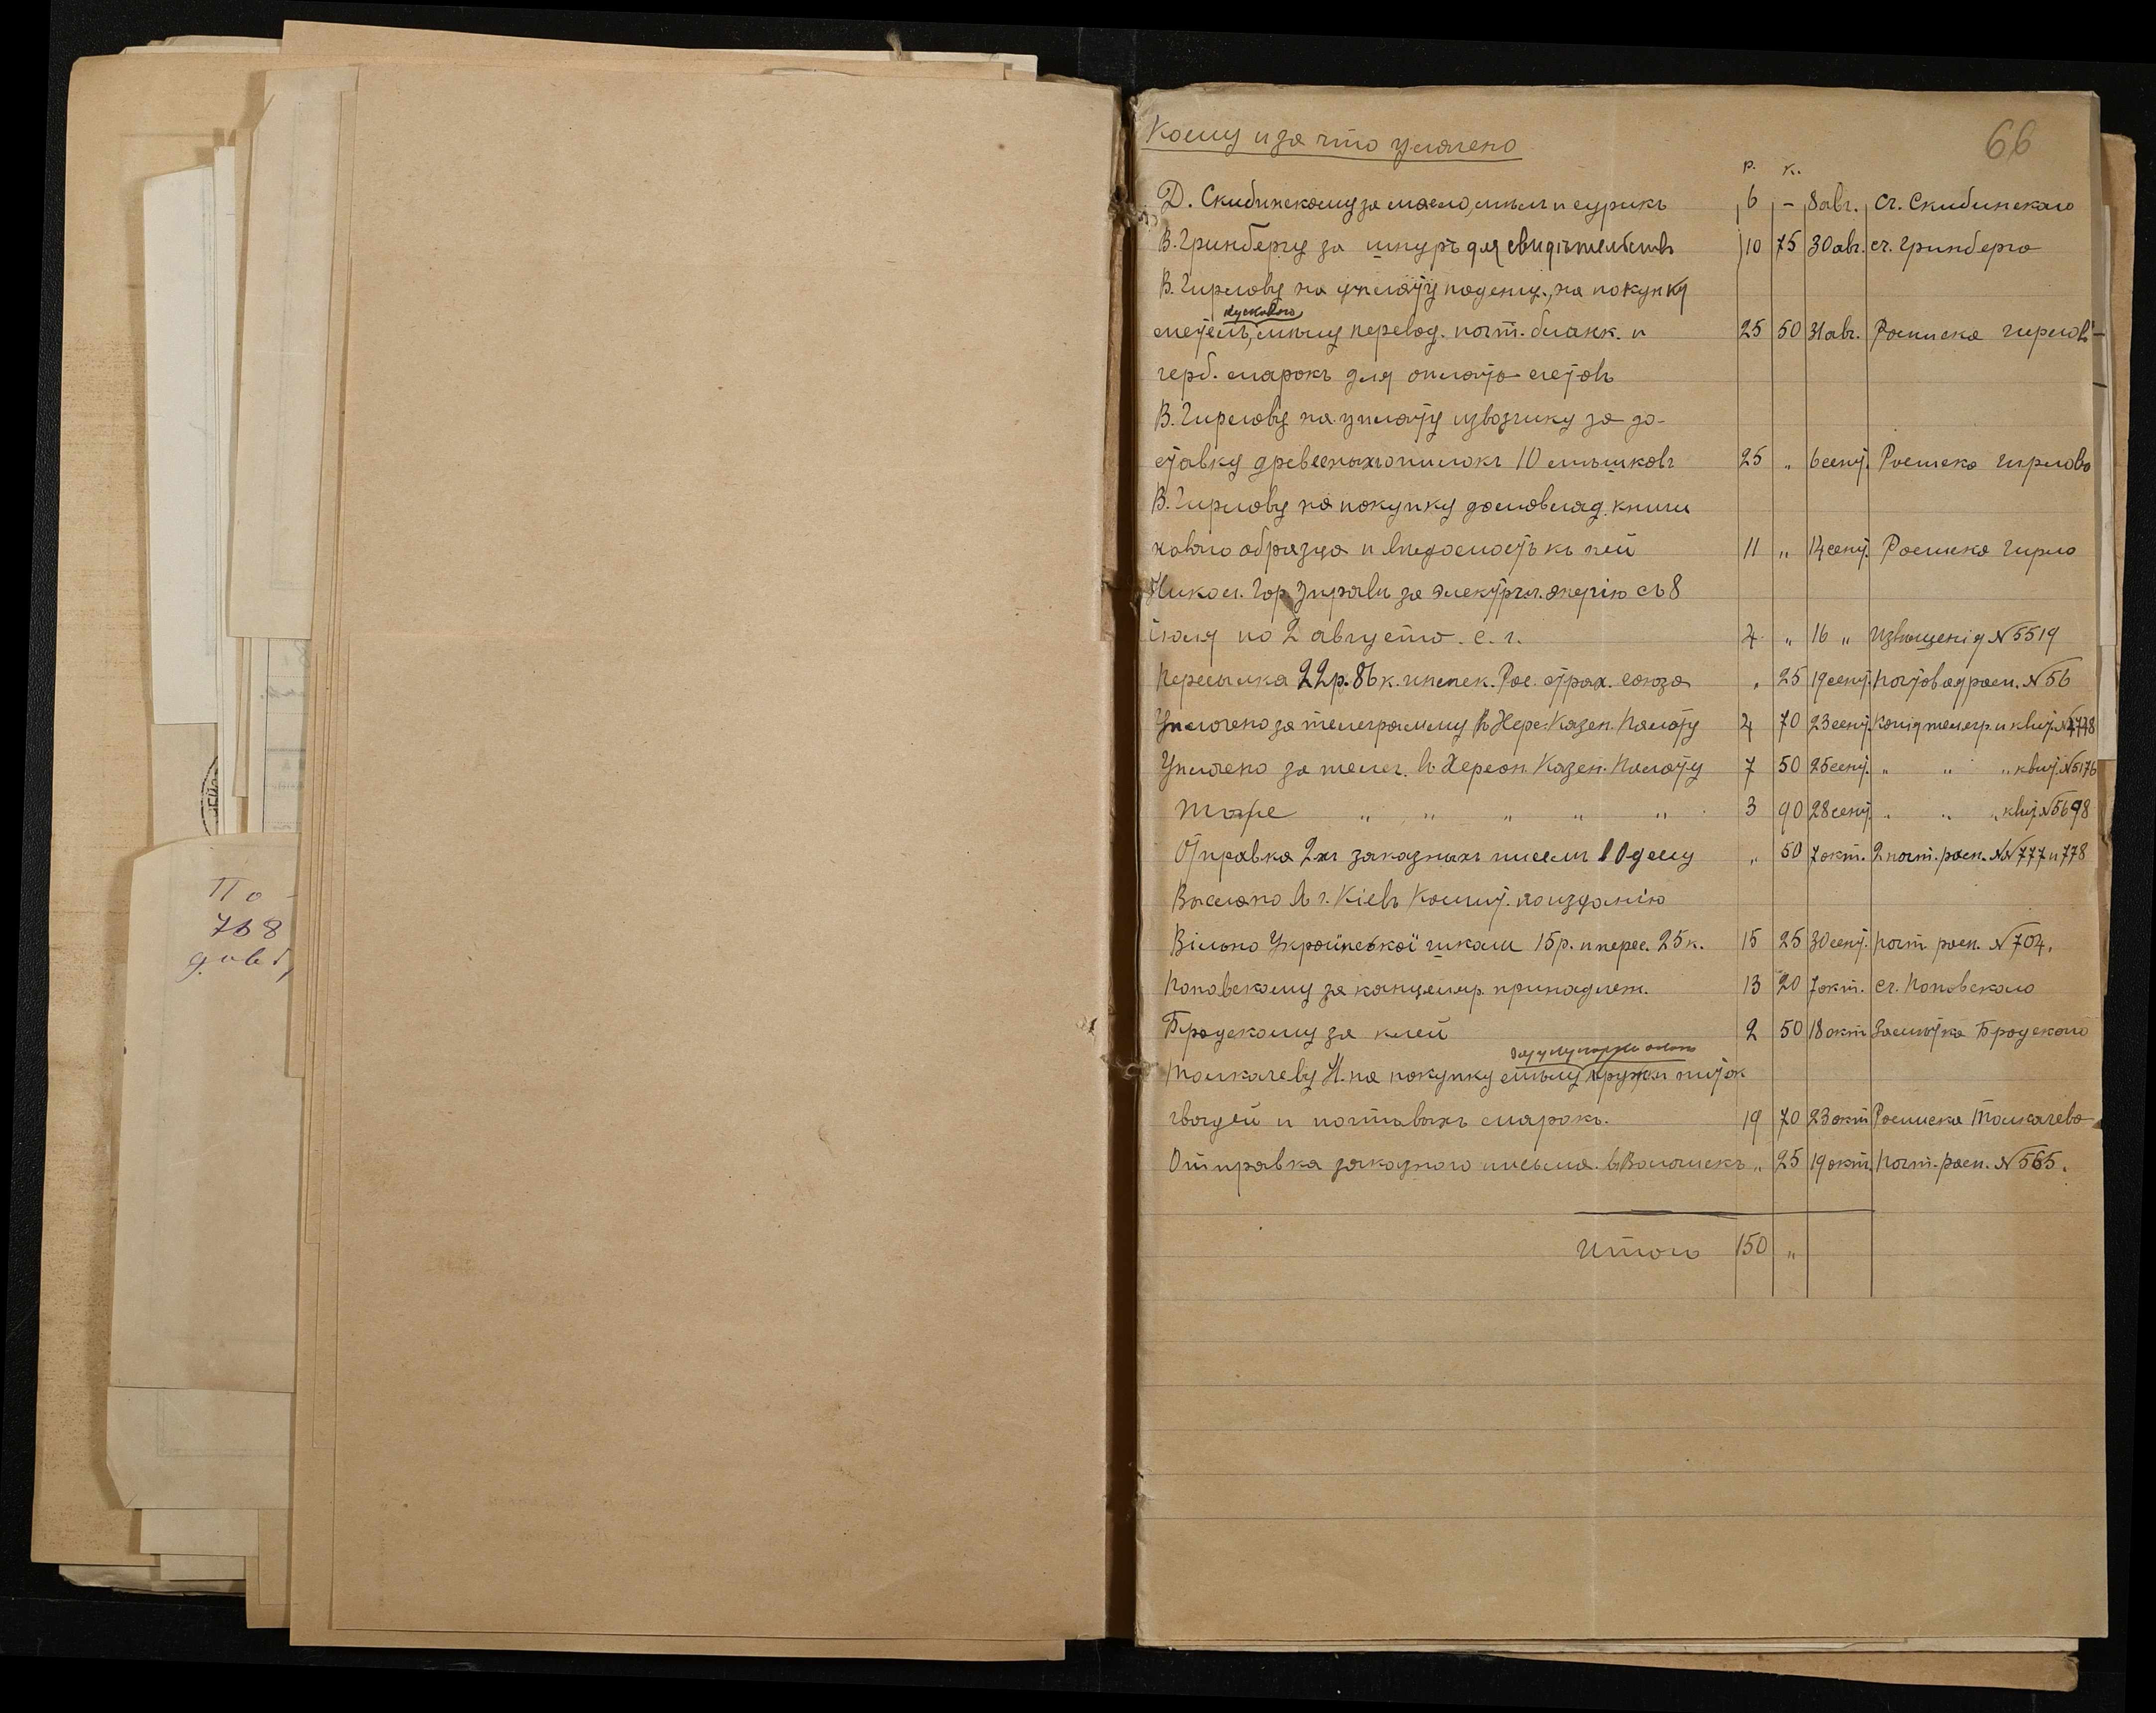 66
Кому и за что уплачено
р. к.
Д. Скибинскому за масло, мѣлъ и сурикъ 6 – 8 авг. сч. Скибинскаго
В. Гринбергу за шнуръ для свидѣтельствъ 10 75 30 авг. сч. Гринберга
В. Гирлову на уплату поденщ., на покупку
кусковаго
метелъ, мѣлу перевод. почт. бланк. и 25 50 31 авг. Росписка Гирлов
герб. марокъ для оплаты счетовъ
В. Гирлову на уплату извозчику за до-
ставку древесныхъ опилокъ 10 мѣшковъ 25 „ 6 сент. Росписка Гирлова
В. Гирлову на покупку домовлад. книги
новаго образца и вѣдомость къ ней 11 „ 14 сент. Росписка Гирло
Никол. Гор. Управѣ за электрич. энергію съ 8
іюля по 2 августа с. г. 4 „ 16 „ Извѣщенія № 5519
Пересылка 22 р. 86 к. ипотек. Рос. страх. союза „ 25 19 сент. почтовая расп. № 56
Уплочено за телеграмму въ Херс. Казен. Палату 4 70 23 сент. Копія телегр. и квит. № 4778
Уплочено за телег. въ Херсон. Казен. Палату 7 50 25 сент. „ „ „ квит. № 5176
тоже „ „ „ „ „ 3 90 28 сент. „ „ „ квит. № 5698
Отправка 2хъ заказныхъ писемъ в Одессу „ 50 7 окт. 2 почт. расп. №№ 777 и 778
Выслано въ г. Кіевъ Комит. по изданію
Вільна Української школи 15 р. и перес. 25 к. 15 25 30 сент. почт. расп. № 704.
Поповскому за канцеляр. принадлеж. 13 20 7 окт. сч. Поповскаго
Бродскому за клей 2 50 18 окт. Замѣтка Бродскаго
Толкачеву Н. на покупку мѣлу кружки ниток
гвоздей и почтовыхъ марокъ. 19 70 23 окт. Росписка Толкачева
Отправка заказного письма въ Волочискъ „ 25 19 окт. почт. расп. № 565.
Итого 150 „
По
768